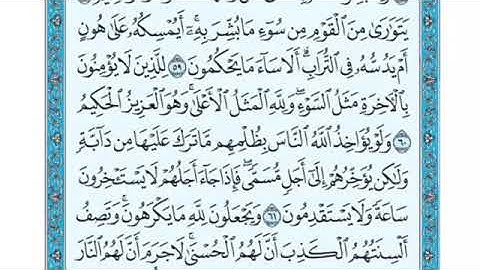 يَتَوَٰرَىٰ مِنَ ٱلْقَوْمِ مِن سُوٓءِ مَا بُشِّرَ بِهِۦٓ ۚ أَيُمْسِكُهُۥ عَلَىٰ هُونٍ
أَمْ يَدُسُّهُۥ فِى ٱلتُّرَابِ ۗ أَلَا سَآءَ مَا يَحْكُمُونَ ۝٥٩ لِلَّذِينَ لَا يُؤْمِنُونَ
بِٱلْءَاخِرَةِ مَثَلُ ٱلسَّوْءِ ۖ وَلِلَّهِ ٱلْمَثَلُ ٱلْأَعْلَىٰ ۚ وَهُوَ ٱلْعَزِيزُ ٱلْحَكِيمُ
۝٦٠ وَلَوْ يُؤَاخِذُ ٱللَّهُ ٱلنَّاسَ بِظُلْمِهِم مَّا تَرَكَ عَلَيْهَا مِن دَآبَّةٍ
وَلَٰكِن يُؤَخِّرُهُمْ إِلَىٰٓ أَجَلٍ مُّسَمًّى ۖ فَإِذَا جَآءَ أَجَلُهُمْ لَا يَسْتَـْٔخِرُونَ
سَاعَةً ۖ وَلَا يَسْتَقْدِمُونَ ۝٦١ وَيَجْعَلُونَ لِلَّهِ مَا يَكْرَهُونَ وَتَصِفُ
أَلْسِنَتُهُمُ ٱلْكَذِبَ أَنَّ لَهُمُ ٱلْحُسْنَىٰ ۖ لَا جَرَمَ أَنَّ لَهُمُ ٱلنَّارَ